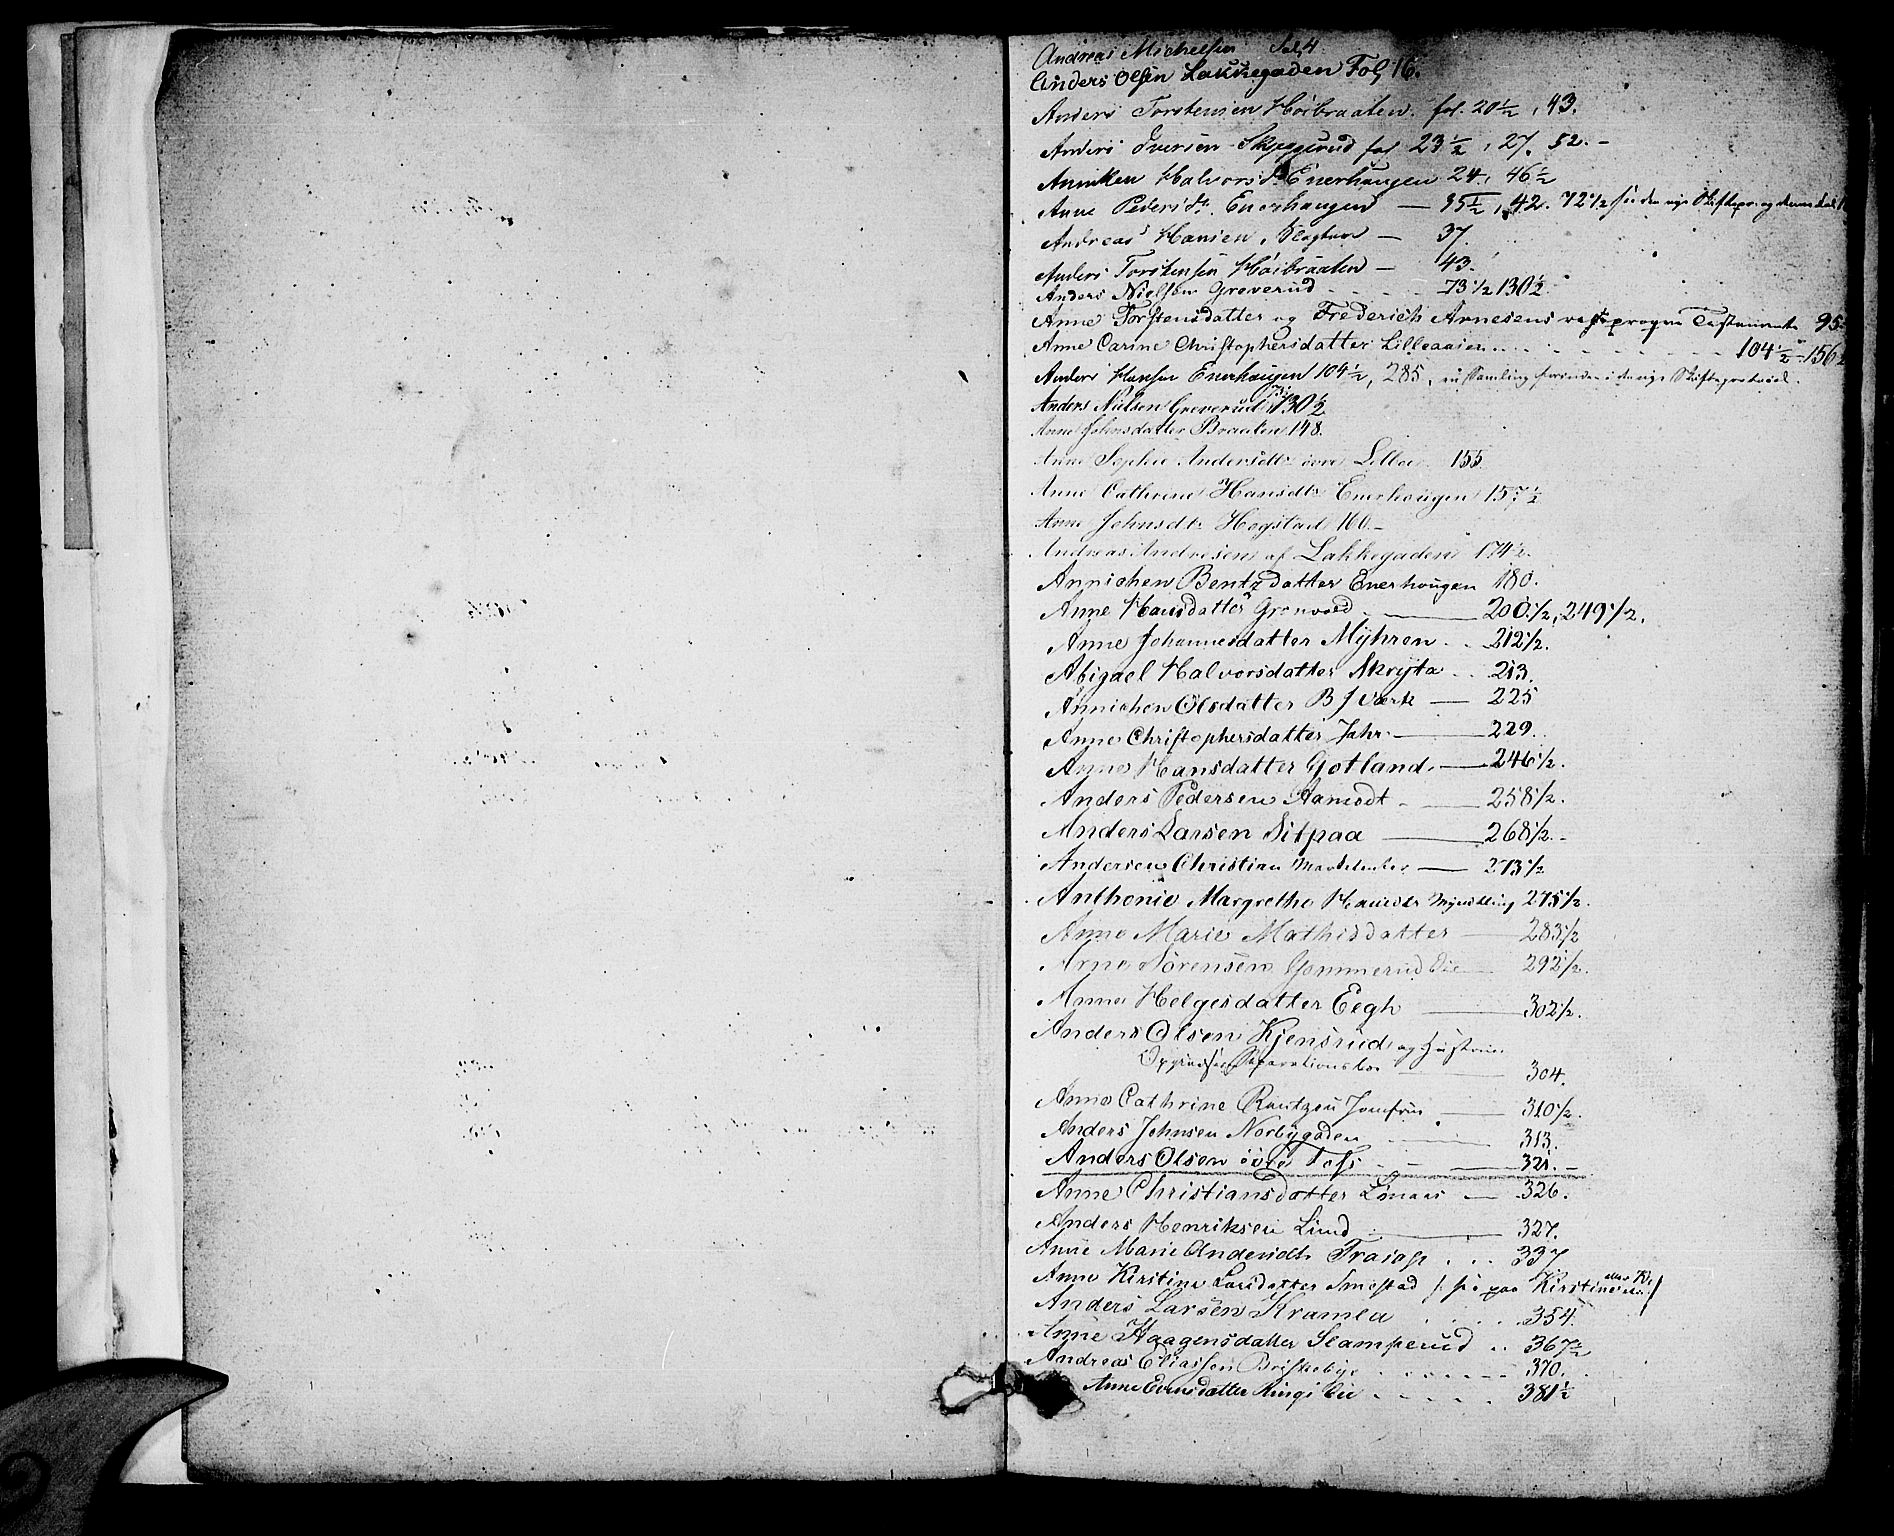 Andreas Michelsen Fol 4
Anders Olsen Lakkegaden Fol 16.
Anders Torstensen Höibraaten. fol. 20½, 43.
Anders Iversen Skyggerud fol 23½, 27, 52. –
Anniken Halvorsd. Enerhaugen 24, 46½
Anne Pedersdt. Enerhaugen — 35½, 42. 72½
Andreas Hansen, — 37.
Anders Torstensen Höibraaten — 43.
Anders Nielsen Greverud 73½ 130½
Anne Torstensdatter og Frederich Arnesens Testamente 95
Anne Carine Christophersdatter Lilleaaien 104½ 156½
Anders Hansen Enerhaugen 104½, 285,
Anders Nielsen Greverud 130½
Anne Johnsdatter Braaten 148.
Anne Sophie Andersdtr övre 155.
Anne Cathrine Hansdtr Enerhaugen 157½
Anne Johnsdtr Hogstad 160.–
Andreas Andresen af Lakkegaden 174½.
Annichen Bentzdatter Enerhougen 180.
Anne Hansdatter Grønvold 200½, 249½.
Anne Johannesdatter Myhren 212½.
Abigael Halvorsdatter Skrÿta 213.
Annichen Olsdatter B J Værk — 225
Anne Christophersdatter Jahr. — 229.
Anne Hansdatter Gotland. — 246½.
Anders Pedersen Aamodt — 258½.
Anders Larsen Sitpaa — 268½. –
Andersen Christian — 273½
Anthonie Margrethe Myndtling 275½.
Anne Marie Mathisdatter — 283½
Arne Sörensen Gommerud Eie — 292½.
Anne Helgesdatter Eegh — 302½.
Anders Olsen Kjensrud og Hustrues
Separationsbo 304.
Anne Cathrine Rantzou Jomfru — 310½.
Anders Johnsen Norbygaden 313.
Anders Olsen övre Foss — 321. –
Anne Christiansdatter — 326.
Anders Henriksen Lund 327.
Anne Marie Andersdt. 337
Anne Kirstine Larsdatter Smestad paa Kirstine
Anders Larsen Kramla 354.
Anne Haagensdatter Slamperud 367½
Andreas Eliassen Briskebye 370.
Anne Evensdatter Ringi Eie 381½